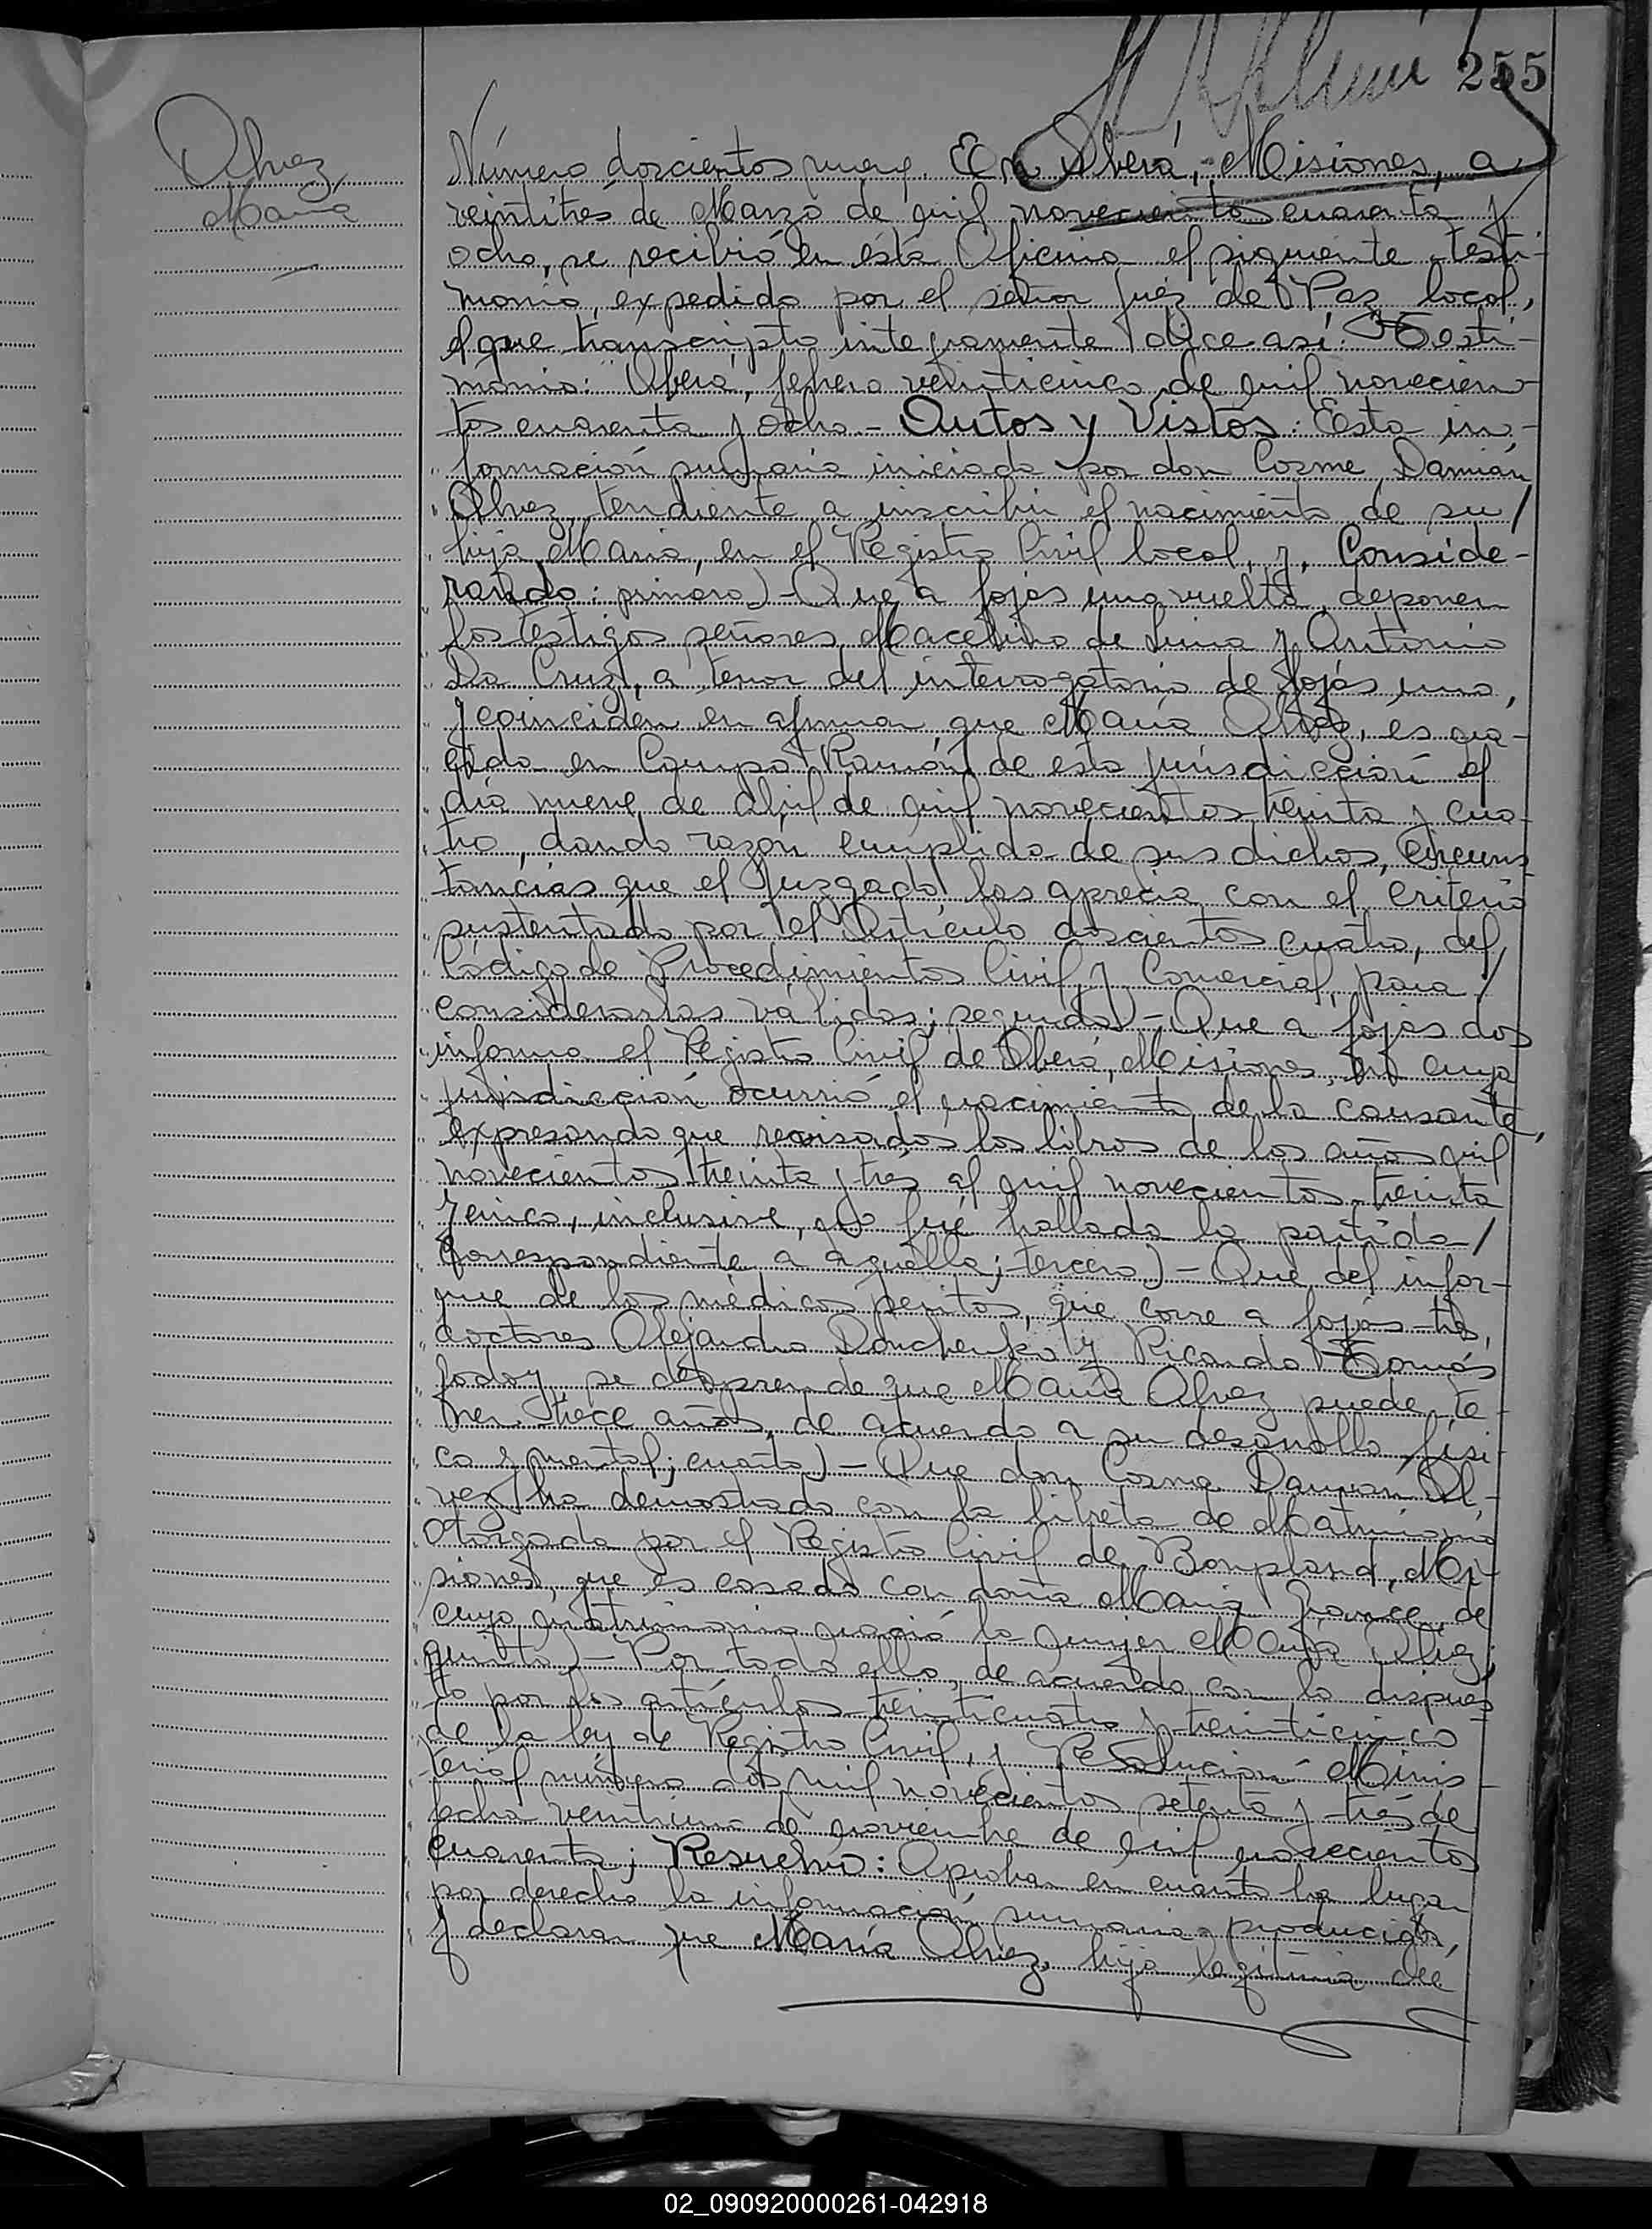 255
Alvez
María
Número doscientos nueve. En Oberá, Misiones, a
veintitrés de Marzo de mil novecientos cuarenta y
ocho, se recibió en ésta Oficina el siguiente testi-
monio, expedido por el señor Juez de Paz local,
el que transcripto integramente dice así: "Testi-
monio: "Oberá, febrero veinticinco de mil novecien-
tos cuarenta y ocho - Autos y Vistos: Esta in-
formación sumaria iniciada por don Cosme Damián
Alvez, tendiente a inscribir el nacimiento de su /
hija María, en el Registro Civil local, y, Conside-
rando: primero) - Que a fojas una vuelta, deponen
los testigos señores Macelino de Lima y Antonio
Da Cruz, a tenor del interrogatorio de fojas una,
y coinciden en afirmar que María Alvez, es na-
cida en Campo Ramón de esta jurisdicción el
día nueve de abril de mil novecientos treinta y cua-
tro, dando razón cumplida de sus dichos, circuns
tancias que el Juzgado las aprecia con el criterio
sustentado por el Artículo doscientos cuatro, del
Código de Procedimientos Civil y Comercial, para /
considerarlas válidas; segundo) - Que a fojas dos
informa el Registro Civil de Oberá, Misiones, en cuya
jurisdicción ocurrió el nacimiento de la causante,
expresando que revisados los libros de los años mil
novecientos treinta y tres al mil novecientos treinta
y cinco, inclusive, no fué hallada la partida /
correspondiente a aquella; tercero) - Que del infor-
me de los médicos peritos, que corre a fojas tres,
doctores Alejandro Donchenko y Ricardo Tomás
Godoy, se desprende que María Alvez puede te-
ner trece años, de acuerdo a su desarrollo físi-
co y mental; cuarto) - Que don Cosme Damián Al-
vez ha demostrado con la libreta de Matrimonio
otorgada por el Registro Civil de Bonpland, Mi-
siones, que es casado con doña María de
cuyo matrimonio nació la mujer María Alvez;
quinto) - Por todo ello, de acuerdo con lo dispues
to por los artículos treinticuatro y treinticinco
de la ley de Registro Civil, y Resolución Minis-
terial número dos mil novecientos setenta y tres de
fecha veintiuno de noviembre de mil novecientos
cuarenta; Resuelvo: Aprobar en cuanto ha lugar
por derecho la información sumaria producida,
y declarar que María Alvez, hija legítima de
02_090920000261-042918